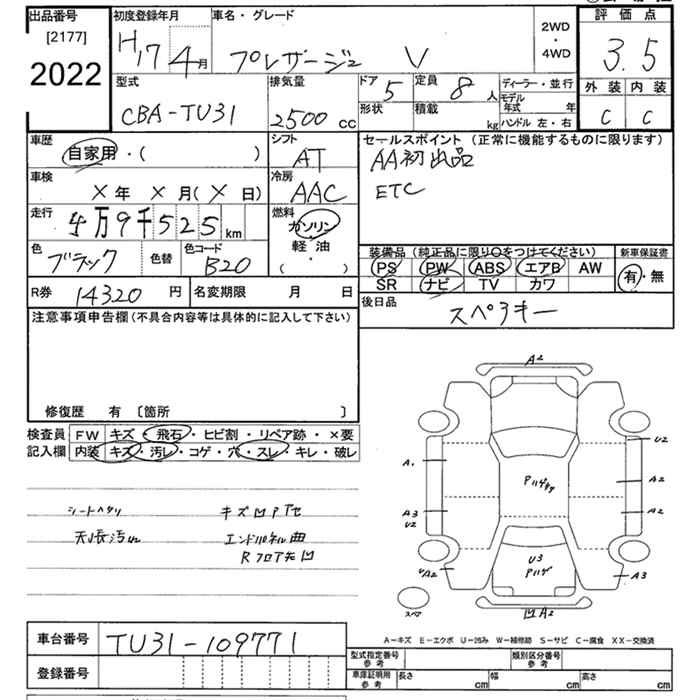 出品番号 初度登録年月 車名・グレード 2WD・4WD 評価点
[2177] H17 4月 プレサージュ V 3.5
2022 型式 排気量 ドア 5 定員 8人 ディーラー・並行 外装 内装
CBA-TU31 2500cc 形状 積載 kg モデル年式 年 ハンドル 左・右 C C
車歴 シフト セールスポイント (正常に機能するものに限ります)
自家用・( ) AT AA初出品
車検 冷房 ETC
×年 ×月(×日) AAC
走行 燃料
4万9千525km ガソリン
色 色替 色コード 軽・油 装備品 (純正品に限り○をつけてください) 新車保証書
ブラック B20 ( ・ ) PS PW ABS エアB AW 有・無
SR ナビ TV カワ
R券 14320円 名変期限 月 日 後日品 スペアキー
注意事項申告欄(不具合内容等は具体的に記入して下さい)
修復歴 有 〔箇所 〕
検査員 FW キズ・飛石・ヒビ割・リペア跡・×要
記入欄 内装 キズ・汚レ・コゲ・穴・スレ・キレ・破レ
シートヘタリ キズ凹P下セ
天張汚レ エンドパネル曲
Rフロア先凹
A2
U2
A1
Pハゲ
A2
A3
U2
A2
U3
Pハゲ
UA2
A3
スペア
凹A2
A-キズ E-エクボ U-凹み W-補修跡 S-サビ C-腐食 XX-交換済
車台番号 TU31-109771
型式指定番号 参考 類別区分番号 参考
登録番号
車庫証明用 参考 長さ cm 幅 cm 高さ cm